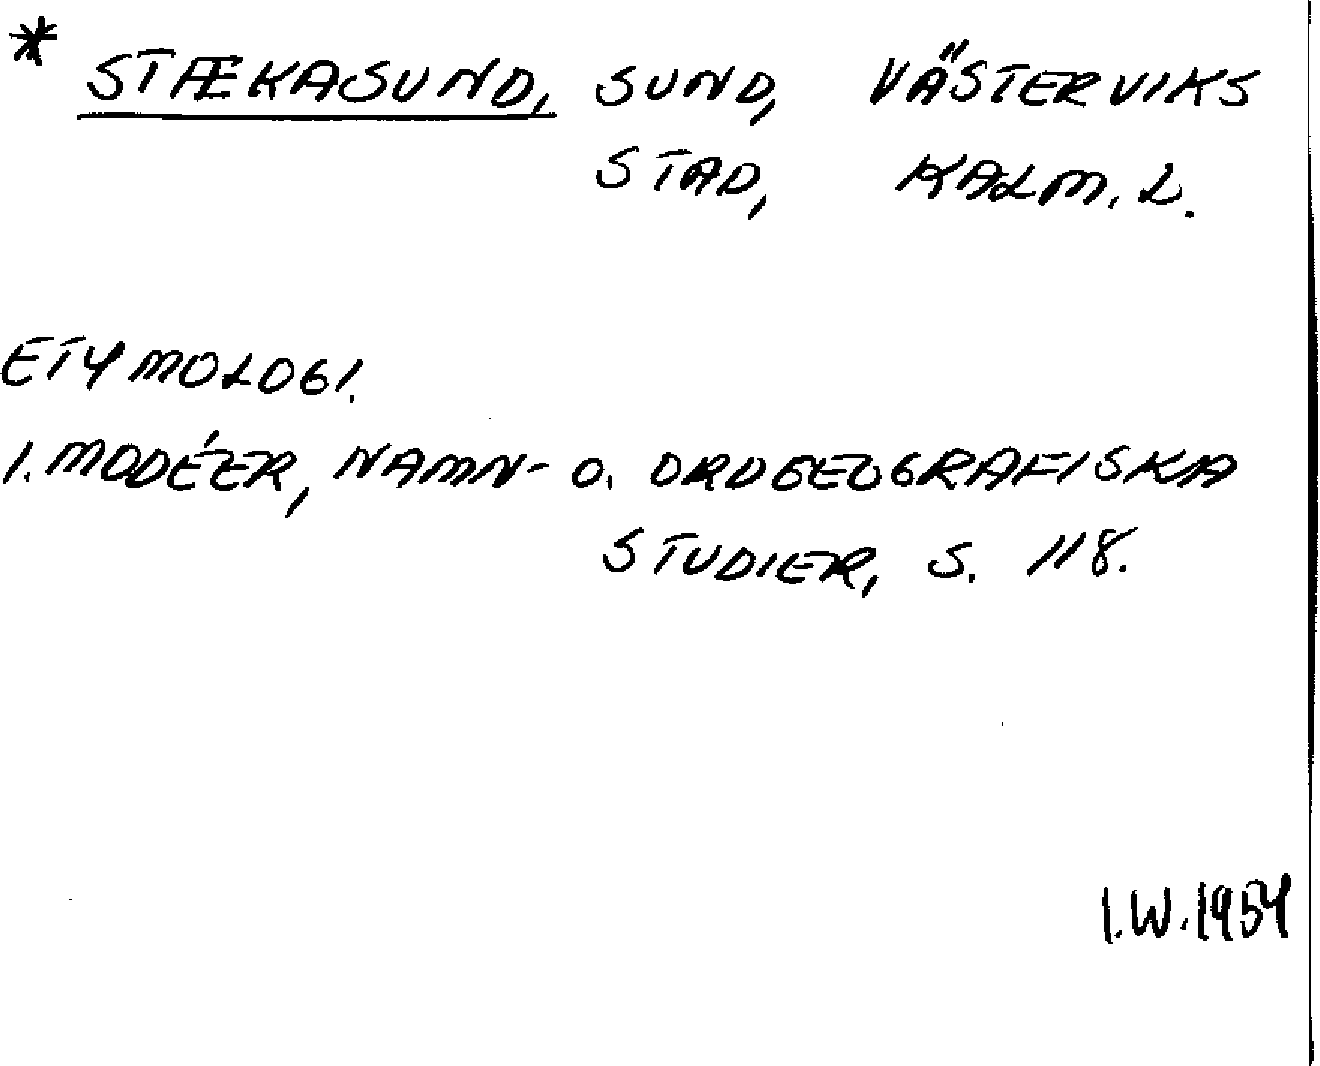 * STÆKASUND, SUND, VÄSTERVIKS
STAD, KALM. L.
ETYMOLOGI.
I. MODÉER, NAMN- O. ORDGEOGRAFISKA
STUDIER, S. 118.
I.W. 1954